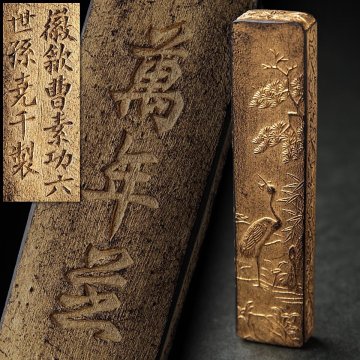 徽歙曹素功六
世孫堯千製
萬年